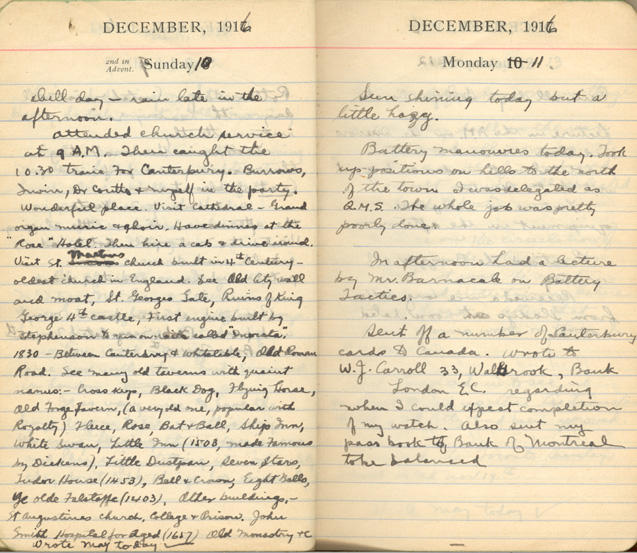 DECEMBER, 1916
2nd in Advent. Sunday 10
chill day – rain late in the
afternoon.
attended church service
at 9 A.M. Then caught the
10.30 train for Canterbury. Burrows,
Irwin, Dr Coutts & myself in the party.
Wonderful place. Visit Cathedral – Grand
organ music & choir. Have dinner at the
"Rose" Hotel. Then hire a cab & drive around.
Visit St. Martins church built in 4th Century –
oldest church in England. See Old City wall
and moat, St. Georges Gate, Ruins of King
George 4th castle, First engine built by
Stephenson to run on called "Invicta".
1830 – Between Canterbury & Whitstable, Old Roman
Road. See many old taverns with quaint
names:– Cross Keys, Black Dog, Flying Horse,
Old Forge Tavern, (a very old one, popular with
Royalty) Fleece, Rose, Bat & Ball, Ships Inn,
White Swan, Little Inn (1503, made famous
by Dickens), Little Dustpan, Seven Stars,
Tudor House (1453), Bell & Crown, Eight Bells,
Ye olde Falstaffe (1403). Other buildings,–
St Augustines church, College & Prison. John
Smith Hospital for Aged (1657) Old Monastry &c
Wrote May today
DECEMBER, 1916
Monday 10 11.
Sun shining today but a
little hazy.
Battery manouvres today. Took
up positions on hills to the north
of the town I was relegated as
Q.M.S. The whole job was pretty
poorly done.
In afternoon had a lecture
by Mr. Barnacak on Battery
Tactics.
Sent off a number of Canterbury
cards to Canada. Wrote to
W.J. Carroll 33, Walbrook, Bank
London E.C. regarding
when I could expect completion
of my watch. Also sent my
pass book to Bank of Montreal
to be balanced